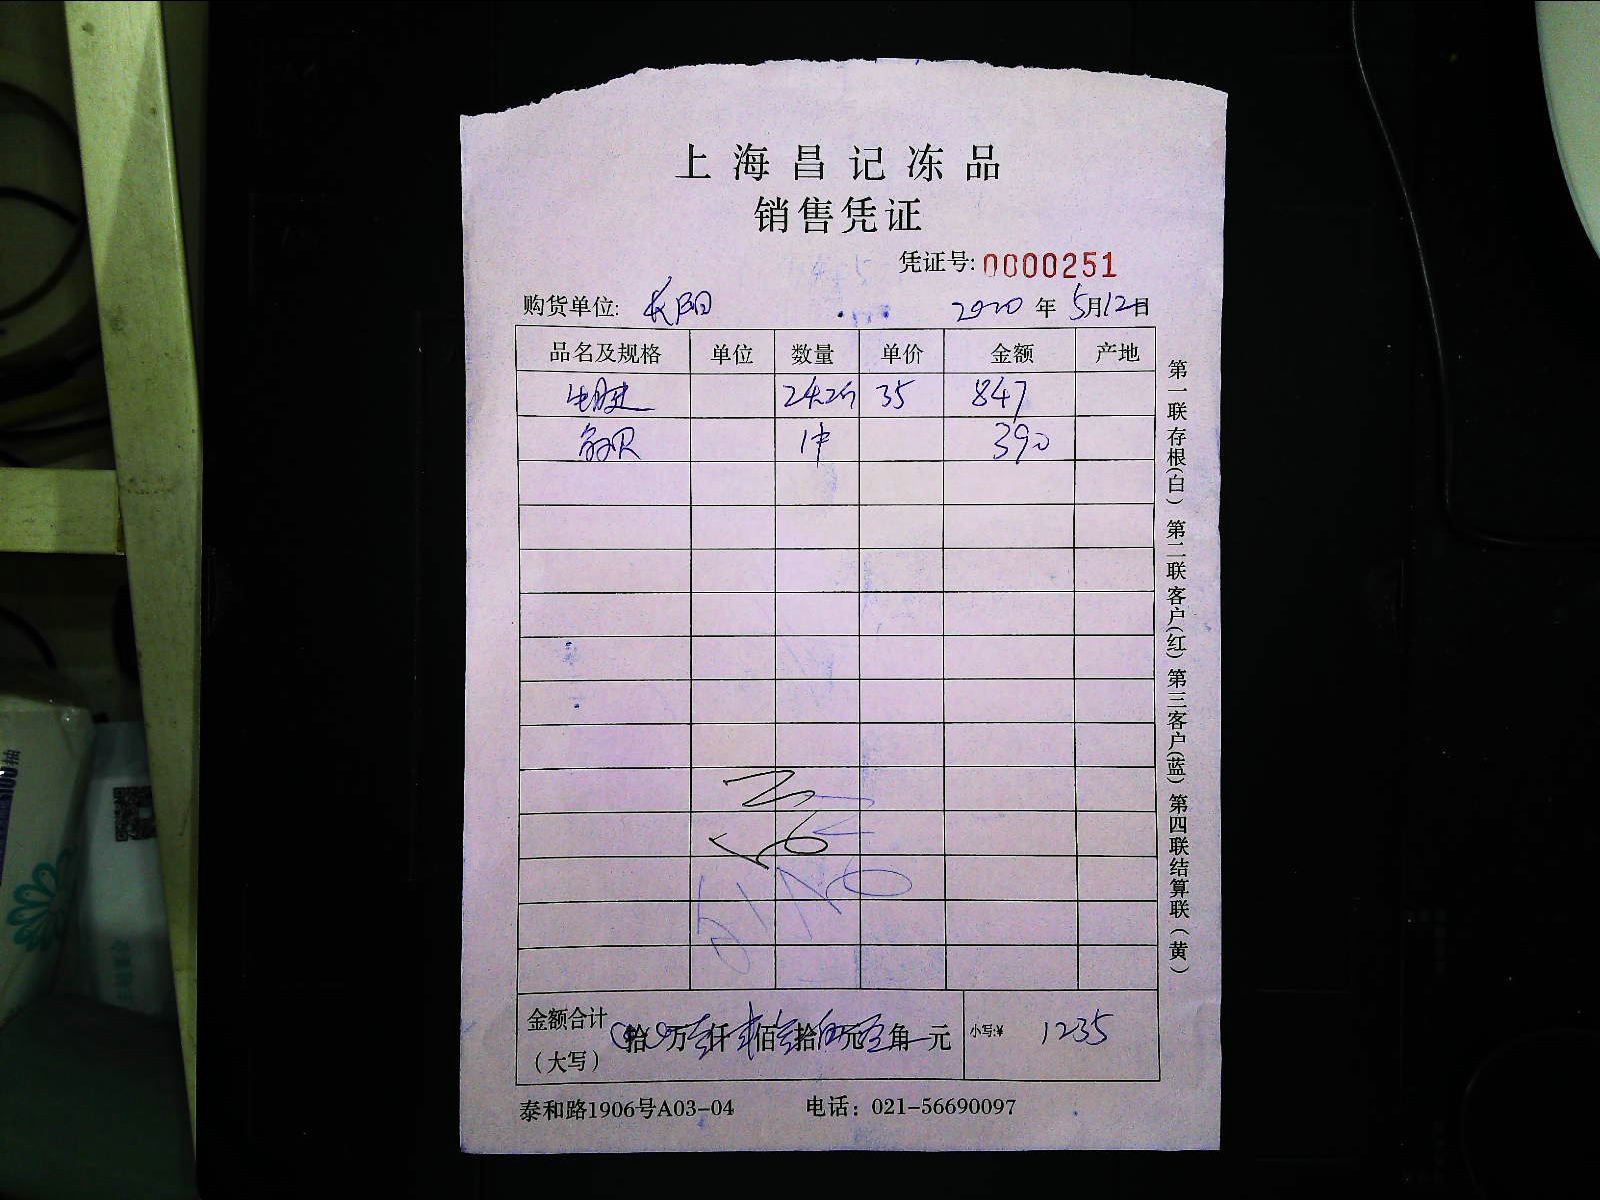 上海昌记冻品
销售凭证
凭证号: 0000251
购货单位: 长阳 2020 年 5月12日
品名及规格 单位 数量 单价 金额 产地
24.2斤 35 847
1件 390
金额合计 拾 万 仟 佰 拾 元 角 元 小写:¥ 1235
(大写)
泰和路1906号A03-04 电话: 021-56690097
第一联存根(白) 第二联客户(红) 第三客户(蓝) 第四联结算联(黄)
100抽